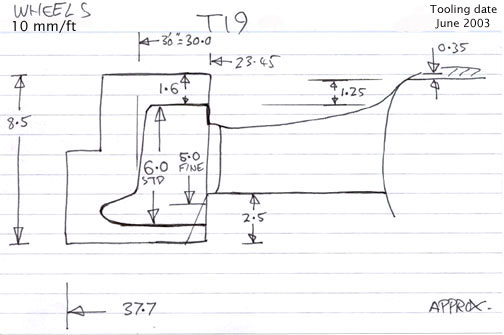 WHEELS
10 mm/ft
T19
Tooling date
June 2003
36"=30.0
23.45
0.35
1.6
1.25
8.5
6.0
STD
5.0
FINE
2.5
37.7
APPROX.